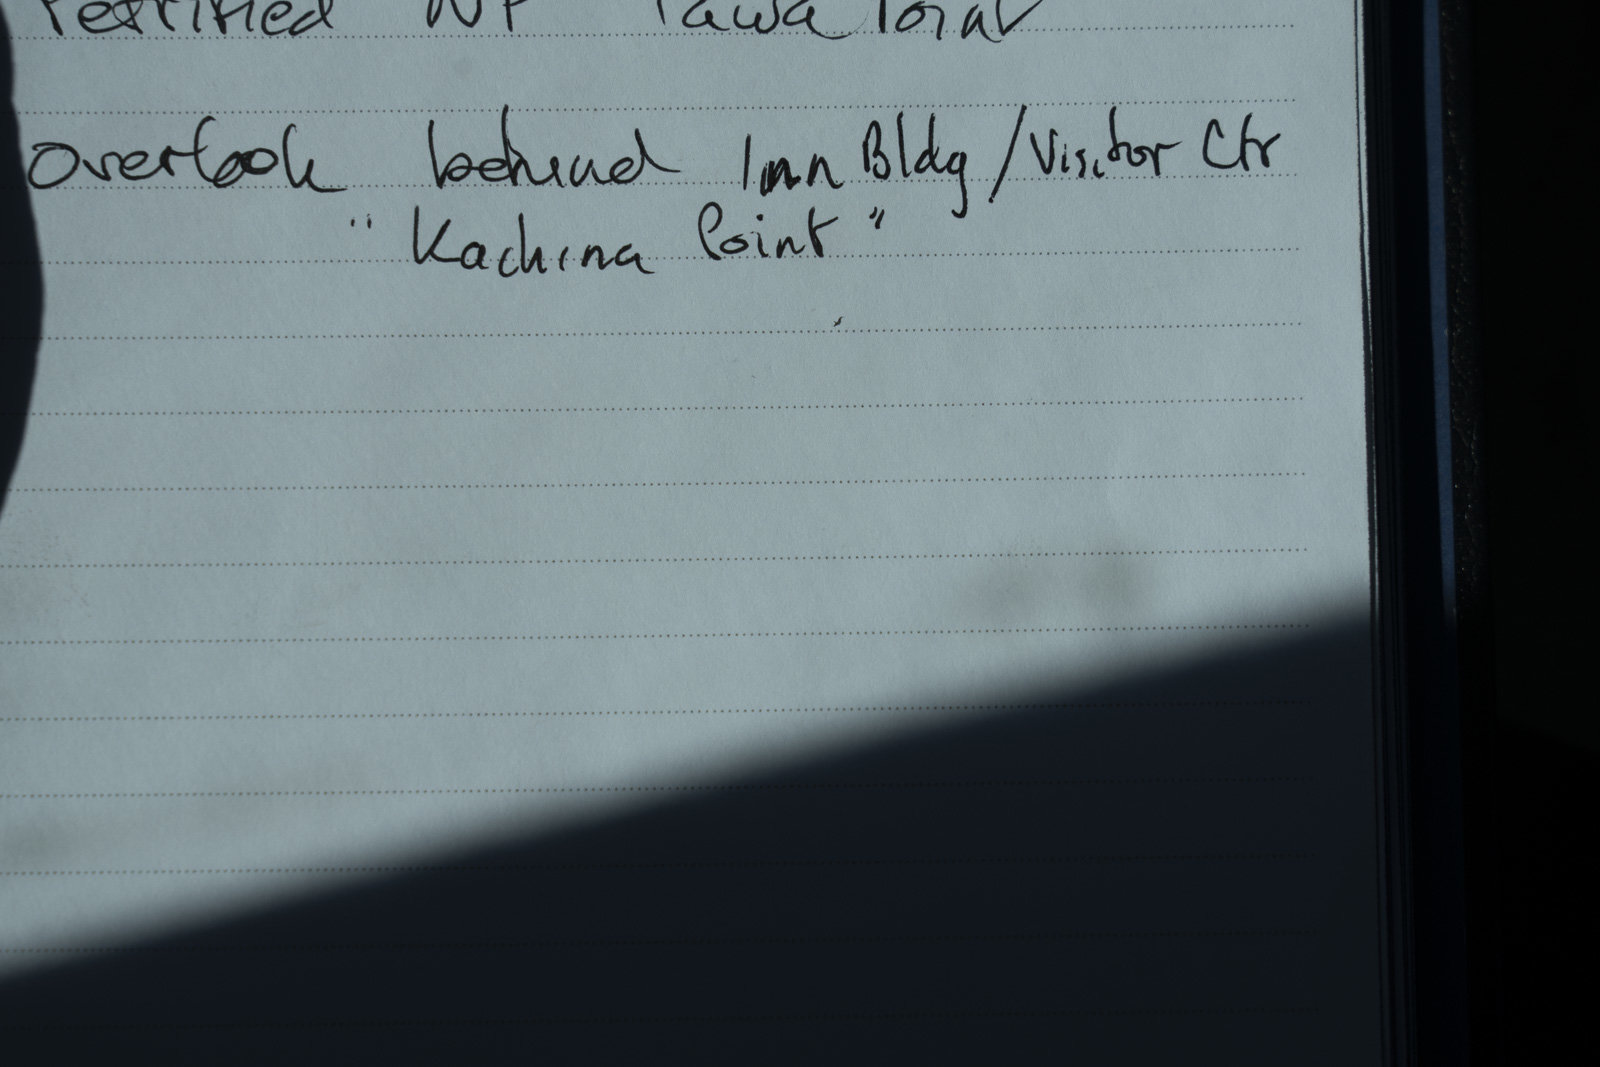 Petrified NP Tawa Point
Overlook behind Inn Bldg/Visitor Ctr
"Kachina Point"